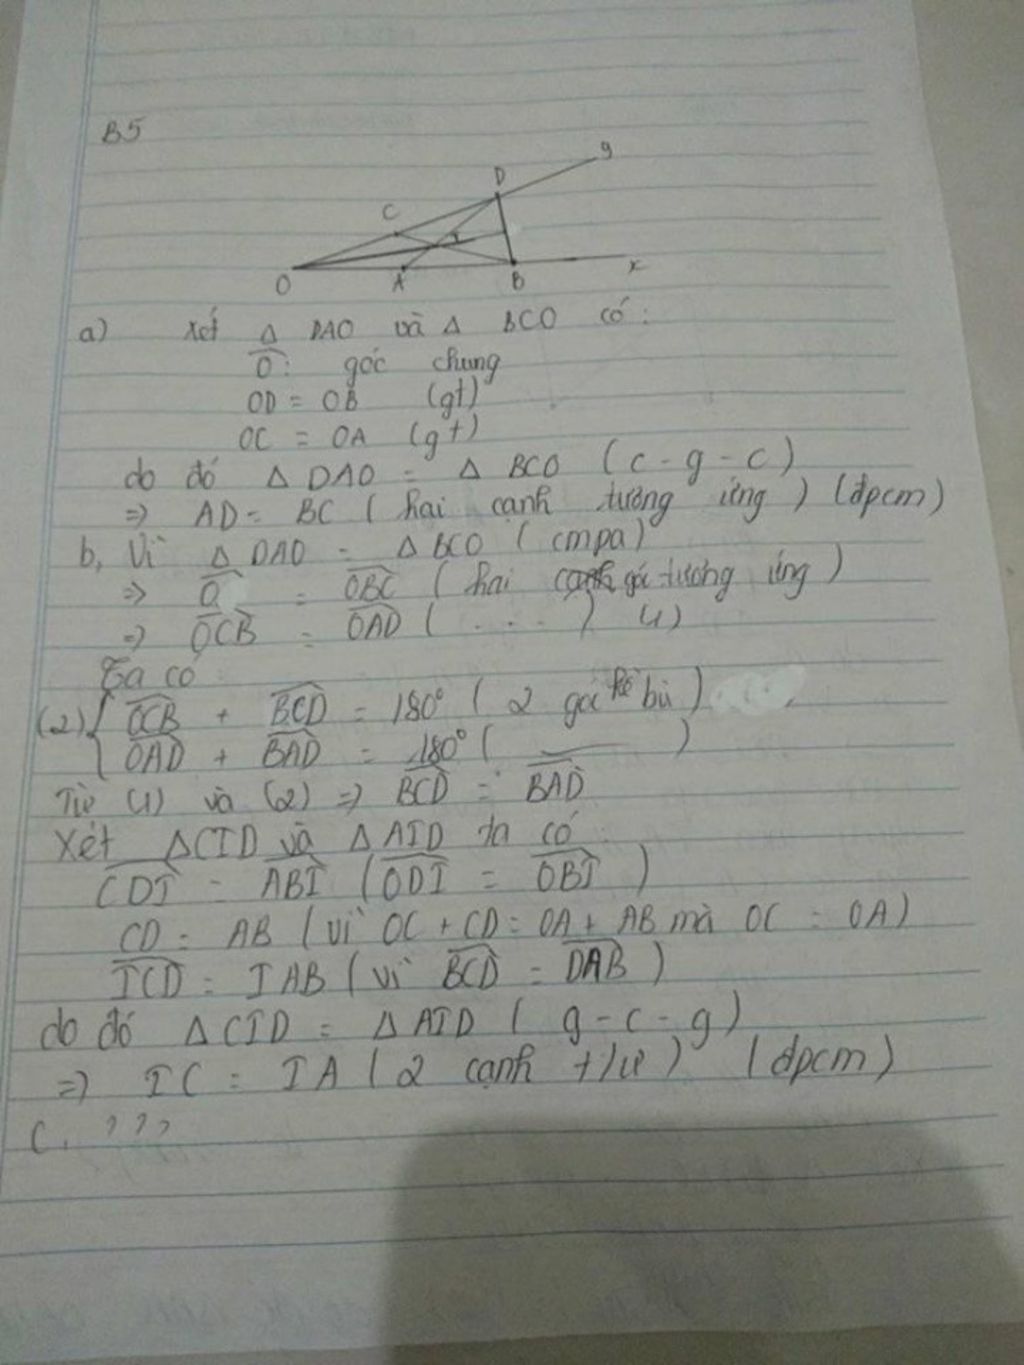 B5
y
D
C
I
O
A
B
x
a) Xét Δ DAO và Δ BCO có:
Ô: góc chung
OD = OB (gt)
OC = OA (gt)
do đó Δ DAO = Δ BCO (c-g-c)
=> AD = BC (hai cạnh tương ứng) (đpcm)
b, Vì Δ DAO = Δ BCO (cmpa)
=> O = OBC (hai góc tương ứng)
=> OCB = OAD (. . .) (1)
Ta có
(2) { OCB + BCD = 180° (2 góc kề bù)
OAD + BAD = 180° ( )
Từ (1) và (2) => BCD = BAD
Xét ΔCID và ΔAID ta có:
CDI = ABI (ODI = OBI)
CD = AB (vì OC + CD = OA + AB mà OC = OA)
ICD = IAB (vì BCD = DAB)
do đó ΔCID = ΔAID (g-c-g)
=> IC = IA (2 cạnh t/ư) (đpcm)
C. ???